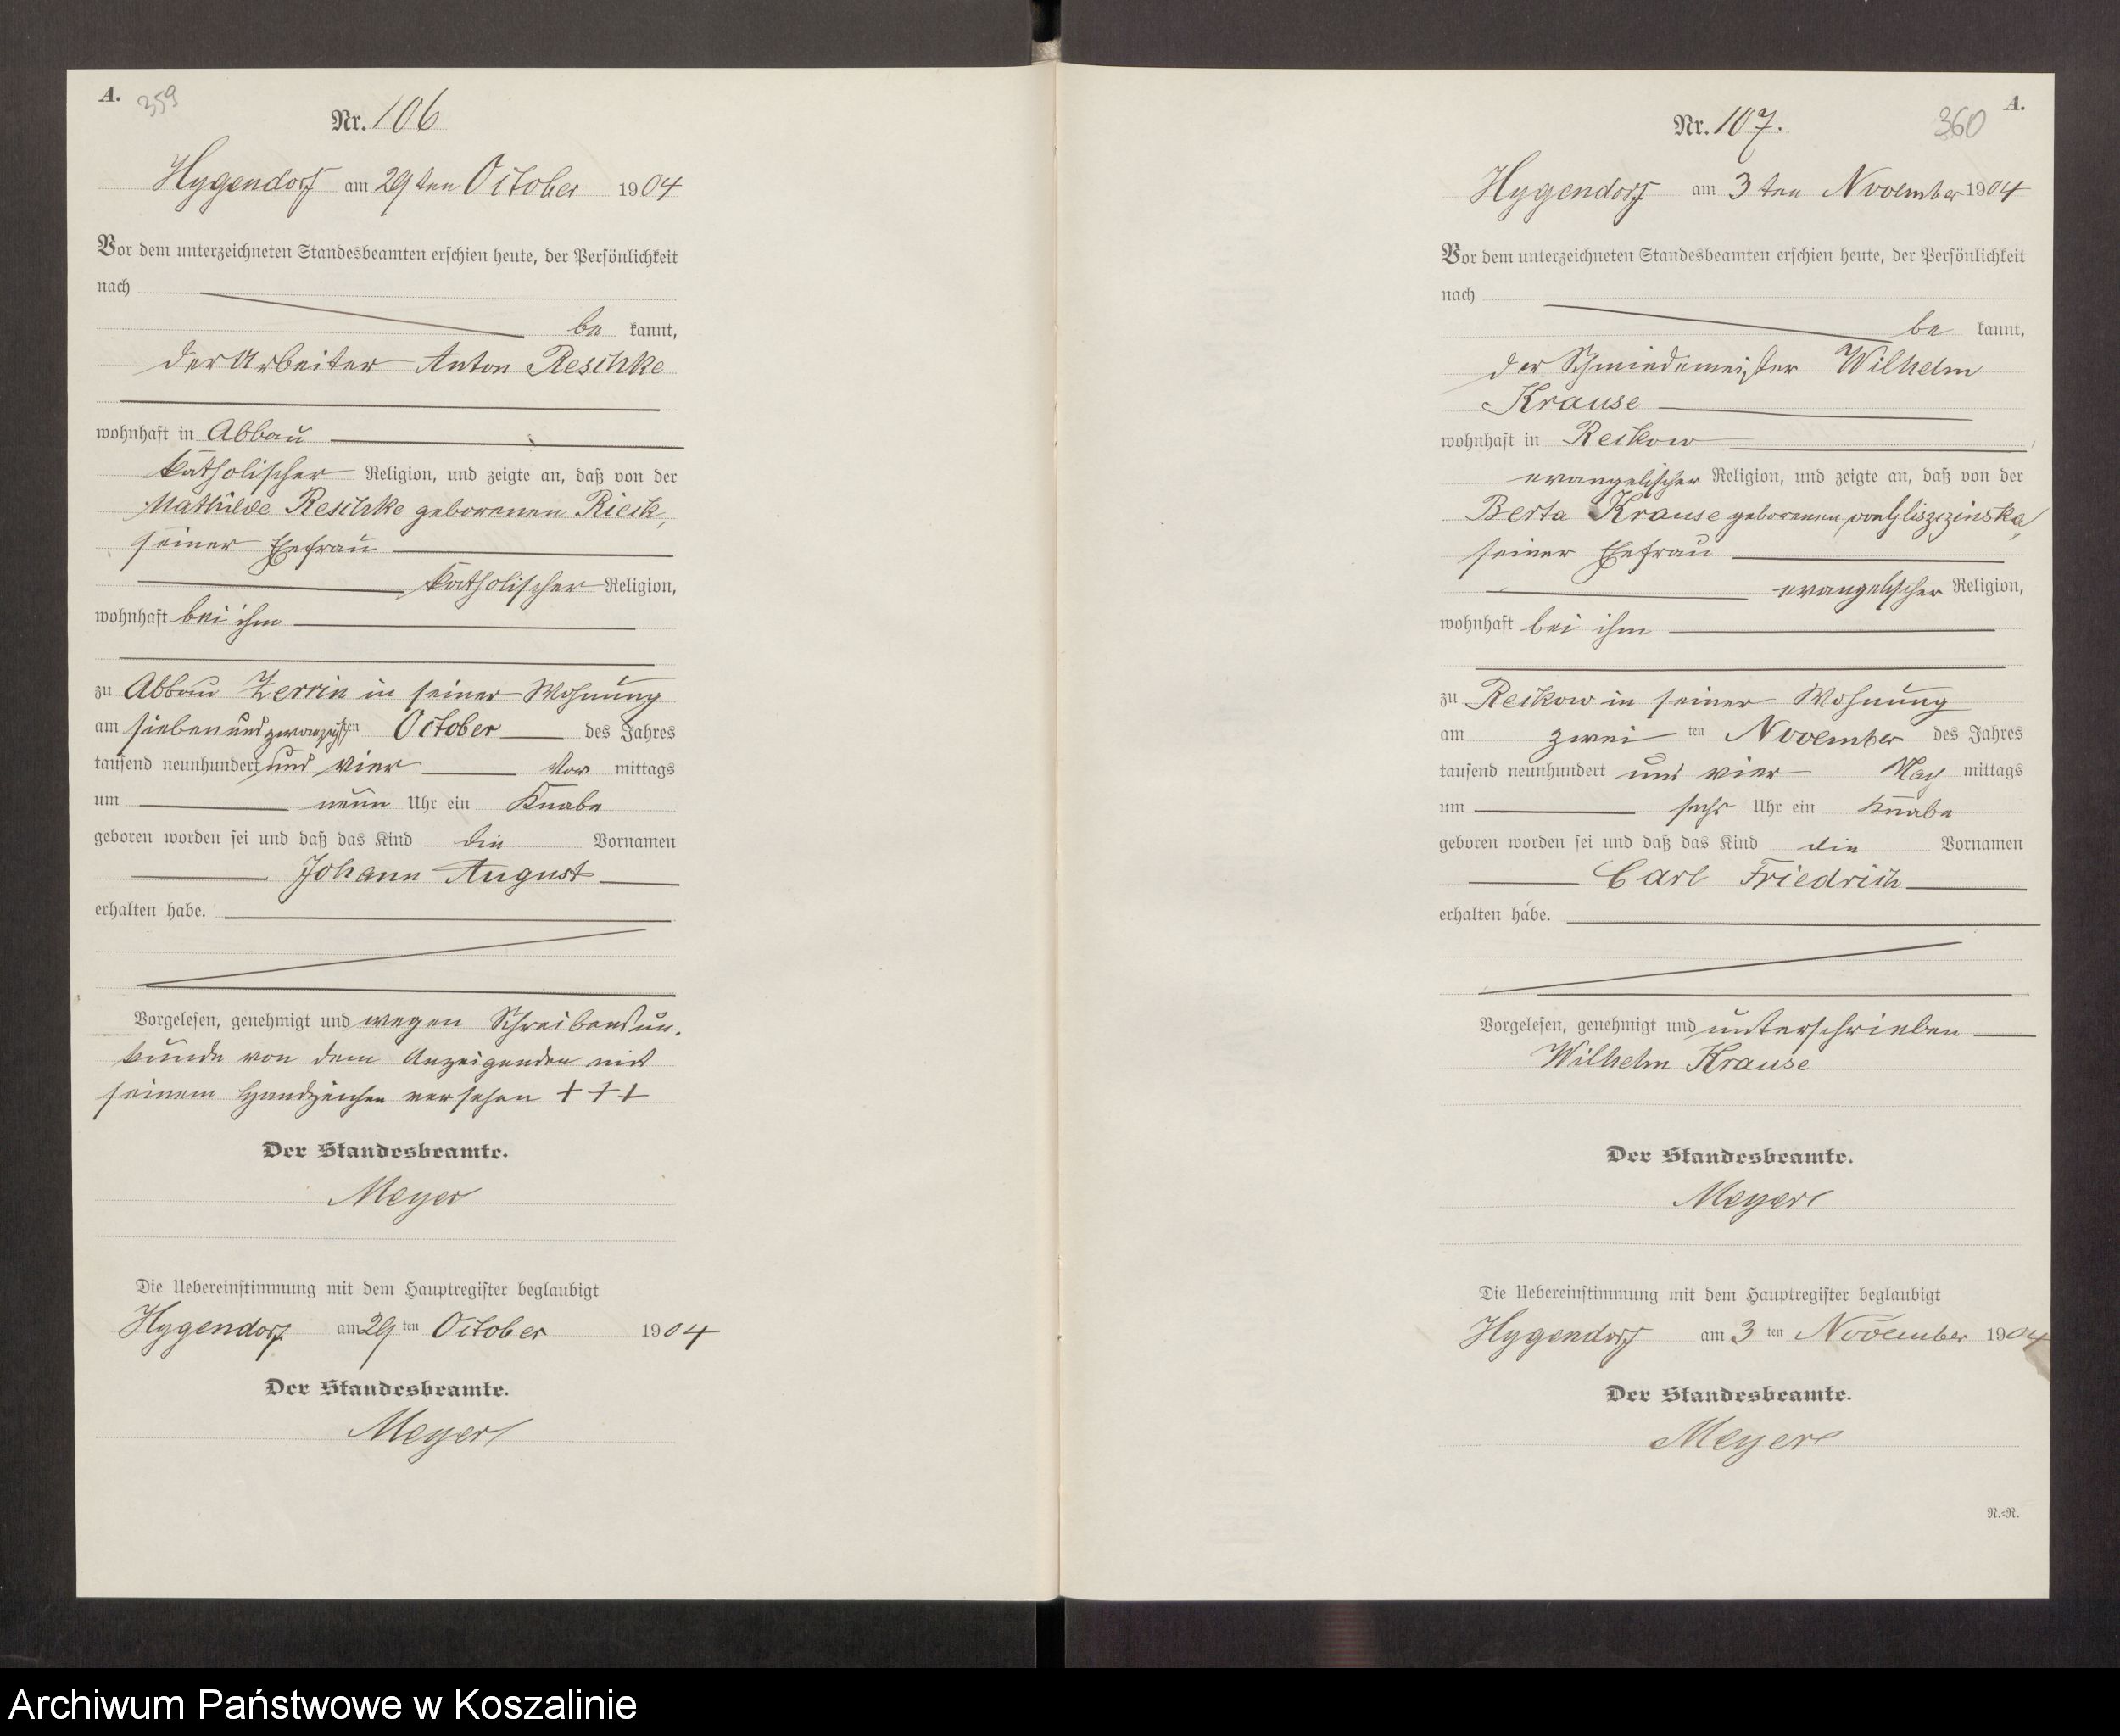 A.
359
Nr. 106
Hygendorf am 29 ten October 1904
Vor dem unterzeichneten Standesbeamten erschien heute, der Persönlichkeit
nach
be kannt,
der Arbeiter Anton Reschke
wohnhaft in Abbau
katholischer Religion, und zeigte an, daß von der
Mathilde Reschke geborenen Rieck,
seiner Ehefrau
katholischer Religion,
wohnhaft bei ihm
zu Abbau Zerrin in seiner Wohnung
am siebenundzwanzigsten October des Jahres
tausend neunhundert und vier Vor mittags
um neun Uhr ein Knabe
geboren worden sei und daß das Kind die Vornamen
Johann August
erhalten habe.
Vorgelesen, genehmigt und wegen Schreibensun-
kunde von dem Anzeigenden mit
seinem Handzeichen versehen + + +
Der Standesbeamte.
Meyer
Die Uebereinstimmung mit dem Hauptregister beglaubigt
Hygendorf am 29 ten October 1904
Der Standesbeamte.
Meyer
A.
360
Nr. 107.
Hygendorf am 3 ten November 1904
Vor dem unterzeichneten Standesbeamten erschien heute, der Persönlichkeit
nach
be kannt,
der Schmiedemeister Wilhelm
Krause
wohnhaft in Reckow
evangelischer Religion, und zeigte an, daß von der
Berta Krause geborenen von
seiner Ehefrau
evangelischer Religion,
wohnhaft bei ihm
zu Reckow in seiner Wohnung
am zwei ten November des Jahres
tausend neunhundert und vier Nach mittags
um sechs Uhr ein Knabe
geboren worden sei und daß das Kind die Vornamen
Carl Friedrich
erhalten habe.
Vorgelesen, genehmigt und unterschrieben
Wilhelm Krause
Der Standesbeamte.
Meyer
Die Uebereinstimmung mit dem Hauptregister beglaubigt
Hygendorf am 3 ten November 1904
Der Standesbeamte.
Meyer
R.=R.
Archiwum Państwowe w Koszalinie